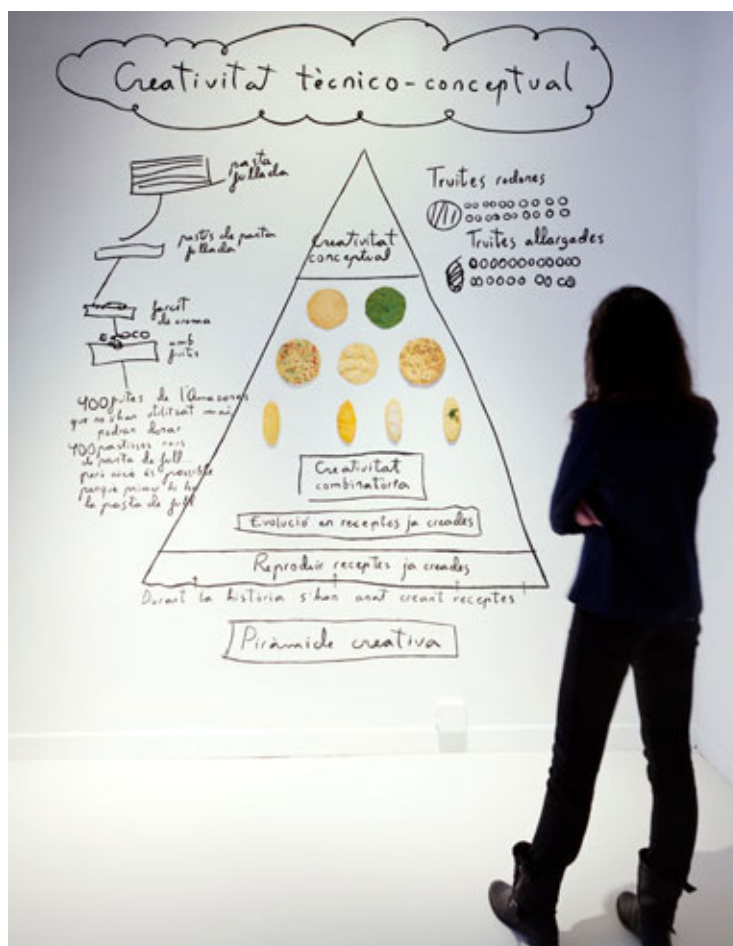 Creativitat tècnico-conceptual
pasta
fullada
pastís de pasta
fullada
farcit
de crema
amb
fruites
400 fruites de l'Amazones
que no s'han utilitzat mai
podran donar
400 pastissos nous
de pasta de full...
però això és possible
perquè primer hi ha
la pasta de full
Creativitat
conceptual
Truites rodones
Truites allargades
Creativitat
combinatòria
Evolució en receptes ja creades
Reproduir receptes ja creades
Durant la història s'han anat creant receptes
Piràmide creativa